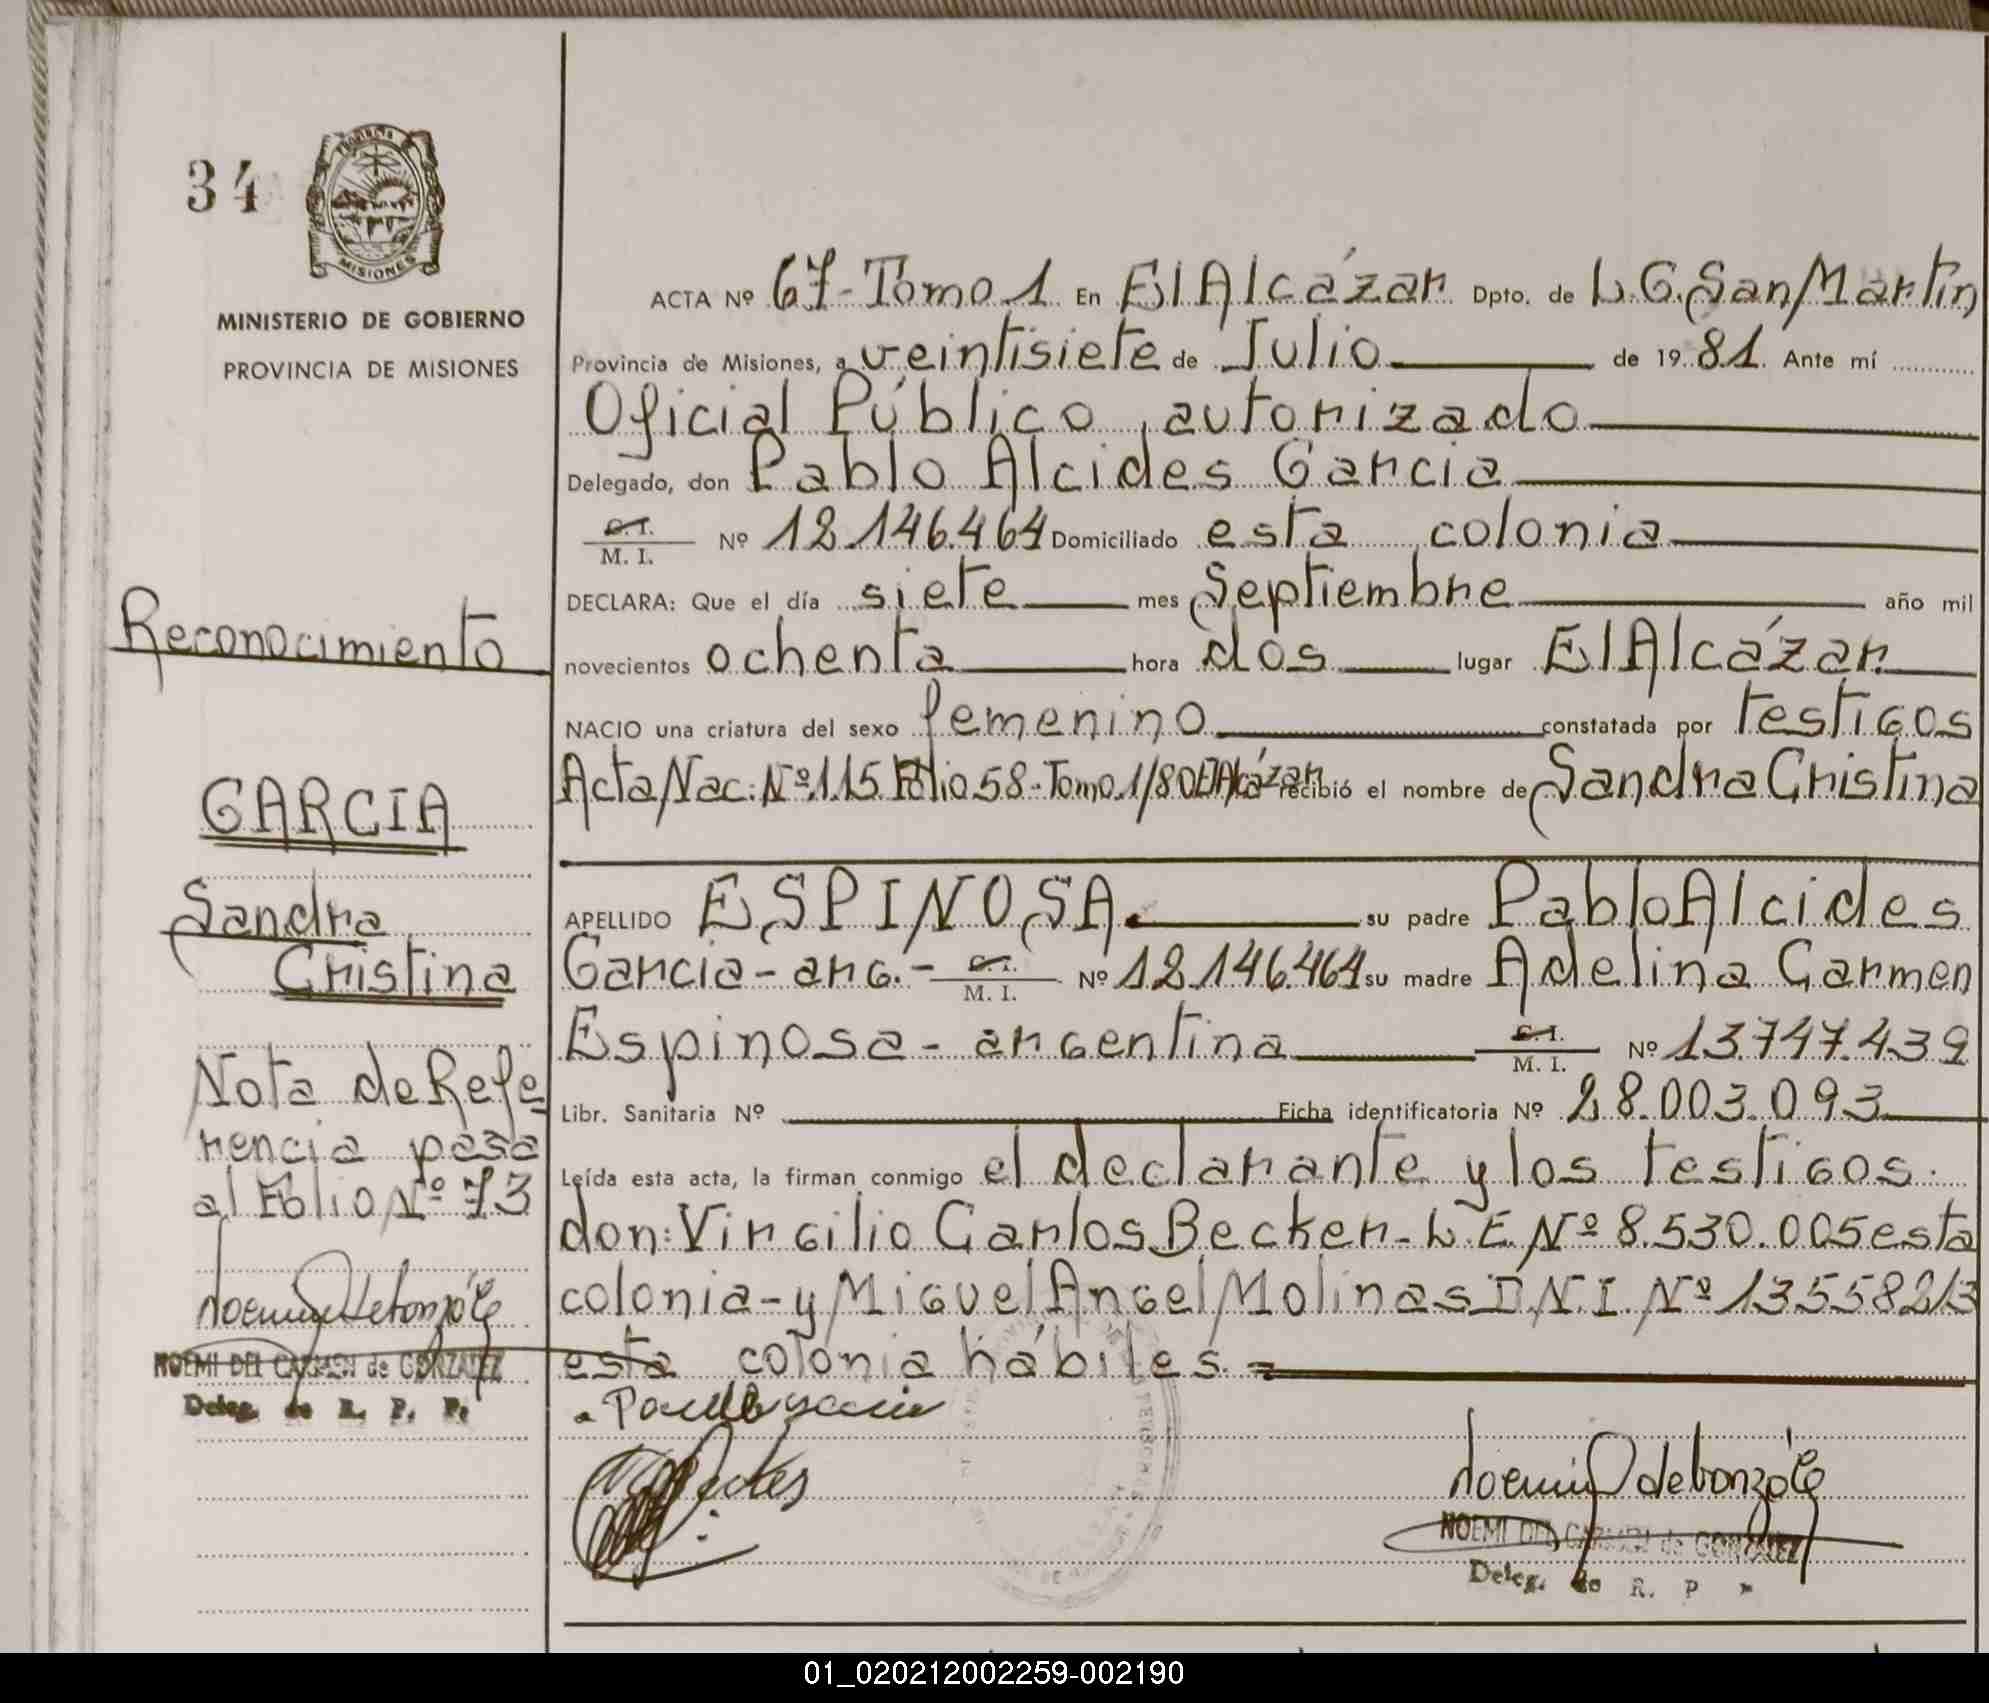 34
PROVINCIA
MISIONES
MINISTERIO DE GOBIERNO
PROVINCIA DE MISIONES
Reconocimiento
GARCIA
Sandra
Cristina
Nota de Refe
rencia pasa
al Folio Nº 73
NOEMI DEL CARMEN de GONZALEZ
Deleg. de R. P. P.
ACTA Nº 67-Tomo 1 En El Alcázar Dpto. de L.G. San Martín
Provincia de Misiones, a veintisiete de Julio de 1981. Ante mí
Oficial Público, autorizado
Delegado, don Pablo Alcides Garcia
C.I. M. I. Nº 12.146.464 Domiciliado esta colonia
DECLARA: Que el día siete mes Septiembre año mil
novecientos ochenta hora dos lugar El Alcázar.
NACIO una criatura del sexo femenino constatada por testigos
Acta Nac: Nº 115 Folio 58-Tomo 1/80 El Alcázar recibió el nombre de Sandra Cristina
APELLIDO ESPINOSA. su padre Pablo Alcides
Garcia - arg. - C.I. M. I. Nº 12.146.464 su madre Adelina Carmen
Espinosa - argentina C.I. M. I. Nº 13.747.439
Libr. Sanitaria Nº Ficha identificatoria Nº 28.003.093
Leída esta acta, la firman conmigo el declarante y los testigos.
don: Virgilio Carlos Becker - L.E. Nº 8.530.005 esta
colonia - y Miguel Angel Molinas D.N.I. Nº 13558213
esta colonia hábiles. =
NOEMI DEL CARMEN de GONZALEZ
Deleg. de R. P
01_020212002259-002190